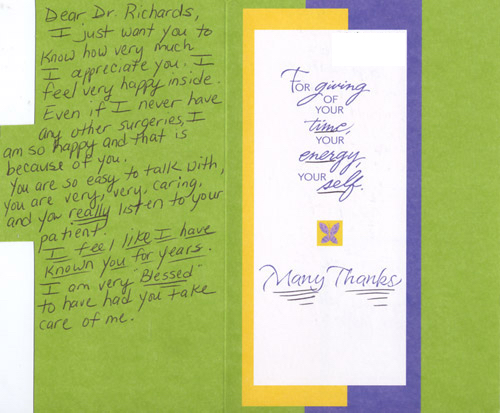 Dear Dr. Richards,
I just want you to
know how very much
I appreciate you. I
feel very happy inside.
Even if I never have
any other surgeries, I
am so happy and that is
because of you.
You are so easy to talk with,
you are very, very, caring,
and you really listen to your
patient.
I feel like I have
known you for years.
I am very "Blessed"
to have had you take
care of me.
FOR giving
OF
YOUR
time,
YOUR
energy,
YOUR self.
Many Thanks